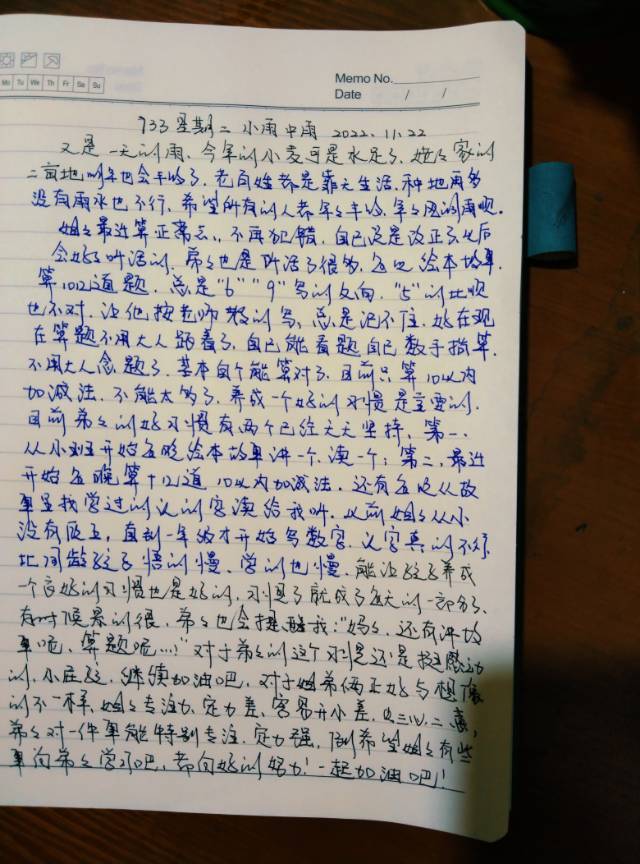 Mo Tu We Th Fr Sa Su
Memo No.
Date / /
733 星期二 小雨中雨 2022.11.22
又是一天的雨,今年的小麦可是水足了,姥姥家的
二亩地明年也会丰收了,老百姓都是靠天生活,种地雨多
没有雨水也不行,希望所有的人都年年丰收,年年风调雨顺。
姐姐最近算正常去,不再犯错,自己总是改正了以后
会好好听话的,弟弟也是听话了很多,每晚绘本故事,
算10-12道题,总是"6""9"写的反向,"5"的比顺
也不对,让他按老师教的写,总是记不住,好在现
在算题不用大人跟着了,自己能看题自己数手指算,
不用大人念题了,基本自个能算对了,目前只算10以内
加减法,不能太多了,养成一个好的习惯是重要的,
目前弟弟的好习惯有两个已经天天坚持,第一、
从小班开始每晚绘本故事讲一个,读一个;第二、最近
开始每晚算十12道10以内加减法,还有每晚从故
事里找学过的认的字读给我听,以前姐姐从小
没有区五,直到一年级才开始写数字,认字真的不行,
比同龄孩子悟的慢,学的也慢,能让孩子养成
一个良好的习惯也是好的,习惯了就成了每天的一部分了,
有时候累的很,弟弟也会提醒我:"妈妈,还有讲故
事呢,算题呢…!"对于弟弟的这个习惯还是挺感动
的,小屁孩,继续加油吧,对于姐弟俩正好与想像
的不一样,姐姐专注力、定力差、容易开小差、三心二意,
弟弟对一件事能特别专注、定力强,倒希望姐姐有些
事向弟弟学习吧,都向好的努力!一起加油吧!